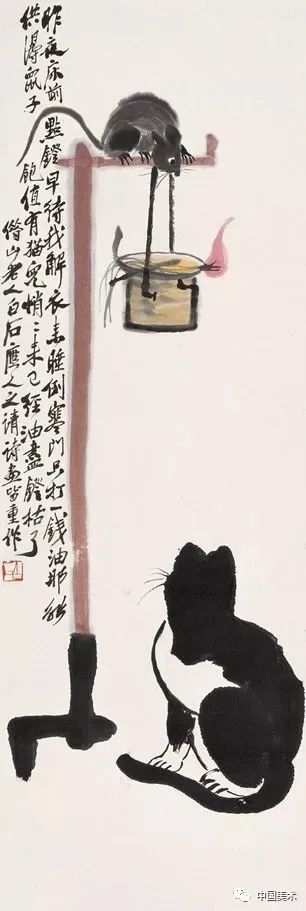 昨夜床前點鐙早待我解衣来睡倒寒門只打一錢油那能
供得鼠子飽值有猫兒悄〻来已經油盡鐙枯了
借山老人白石應人之請詩畫皆重作
中国美术